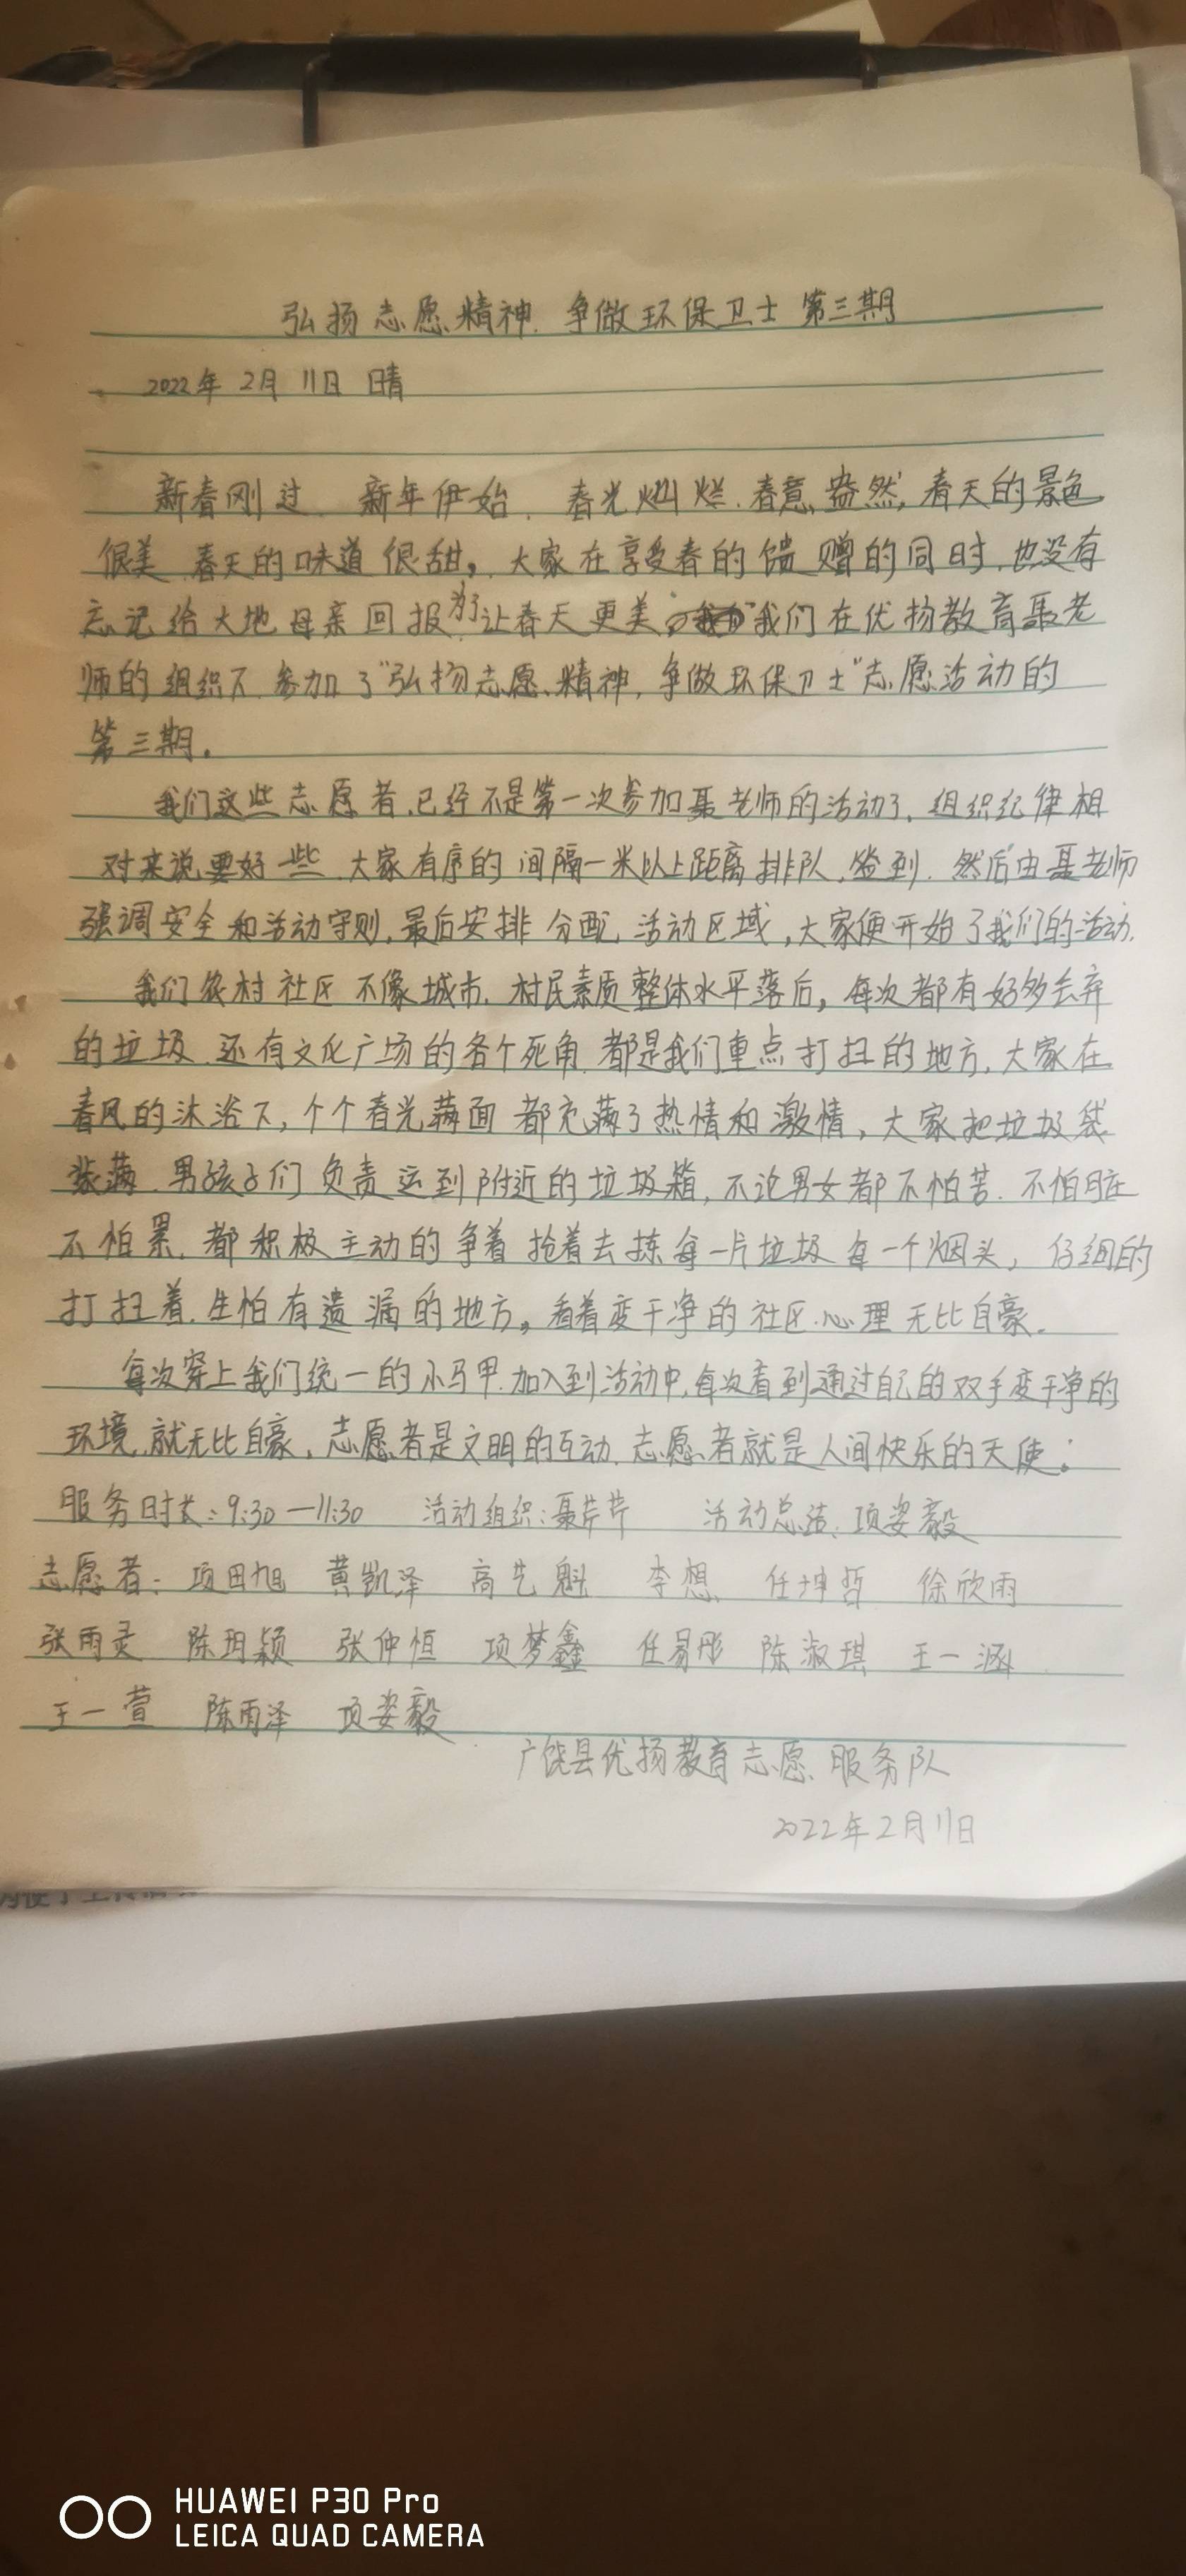 弘扬志愿精神.争做环保卫士 第三期
2022年2月11日 晴
新春刚过.新年伊始.春光灿烂.春意盎然,春天的景色
很美.春天的味道很甜。大家在享受春的馈赠的同时.也没有
忘记给大地母亲回报.为了让春天更美,我们在优扬教育聂老
师的组织下.参加了"弘扬志愿精神,争做环保卫士"志愿活动的
第三期。
我们这些志愿者.已经不是第一次参加聂老师的活动了.组织纪律相
对来说要好一些.大家有序的间隔一米以上距离排队,签到.然后由聂老师
强调安全和活动守则,最后安排分配活动区域,大家便开始了我们的活动.
我们农村社区不像城市.村民素质整体水平落后,每次都有好多丢弃
的垃圾.还有文化广场的各个死角.都是我们重点打扫的地方.大家在
春风的沐浴下,个个春光满面都充满了热情和激情,大家把垃圾袋
装满.男孩子们负责运到附近的垃圾箱,不论男女都不怕苦.不怕脏
不怕累.都积极主动的争着抢着去拣每一片垃圾每一个烟头,仔细的
打扫着.生怕有遗漏的地方。看着变干净的社区.心理无比自豪.
每次穿上我们统一的小马甲.加入到活动中,每次看到通过自己的双手变干净的
环境.就无比自豪.志愿者是文明的互动.志愿者就是人间快乐的天使.
服务时长:9:30—11:30 活动组织:聂芹芹 活动总结:项姿毅
志愿者: 项田旭 黄凯泽 高艺魁 李想 任坤哲 徐欣雨
张雨灵 陈玥颖 张仲恒 项梦鑫 任易彤 陈淑琪 王一涵
王一萱 陈雨泽 项姿毅
广饶县优扬教育志愿服务队
2022年2月11日
HUAWEI P30 Pro
LEICA QUAD CAMERA